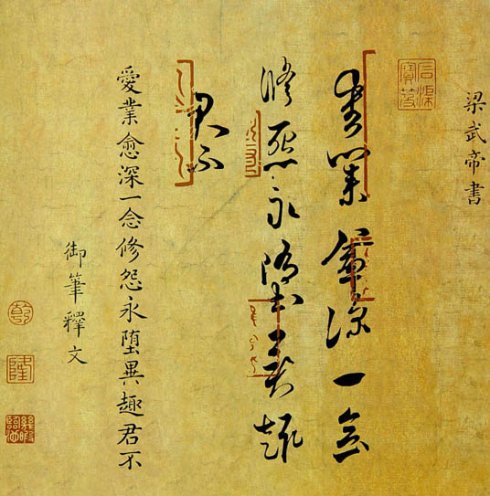 梁武帝書
愛業愈深一念
修怨永墮異趣
君不
愛業愈深一念修怨永墮異趣君不
御筆釋文
乾
隆